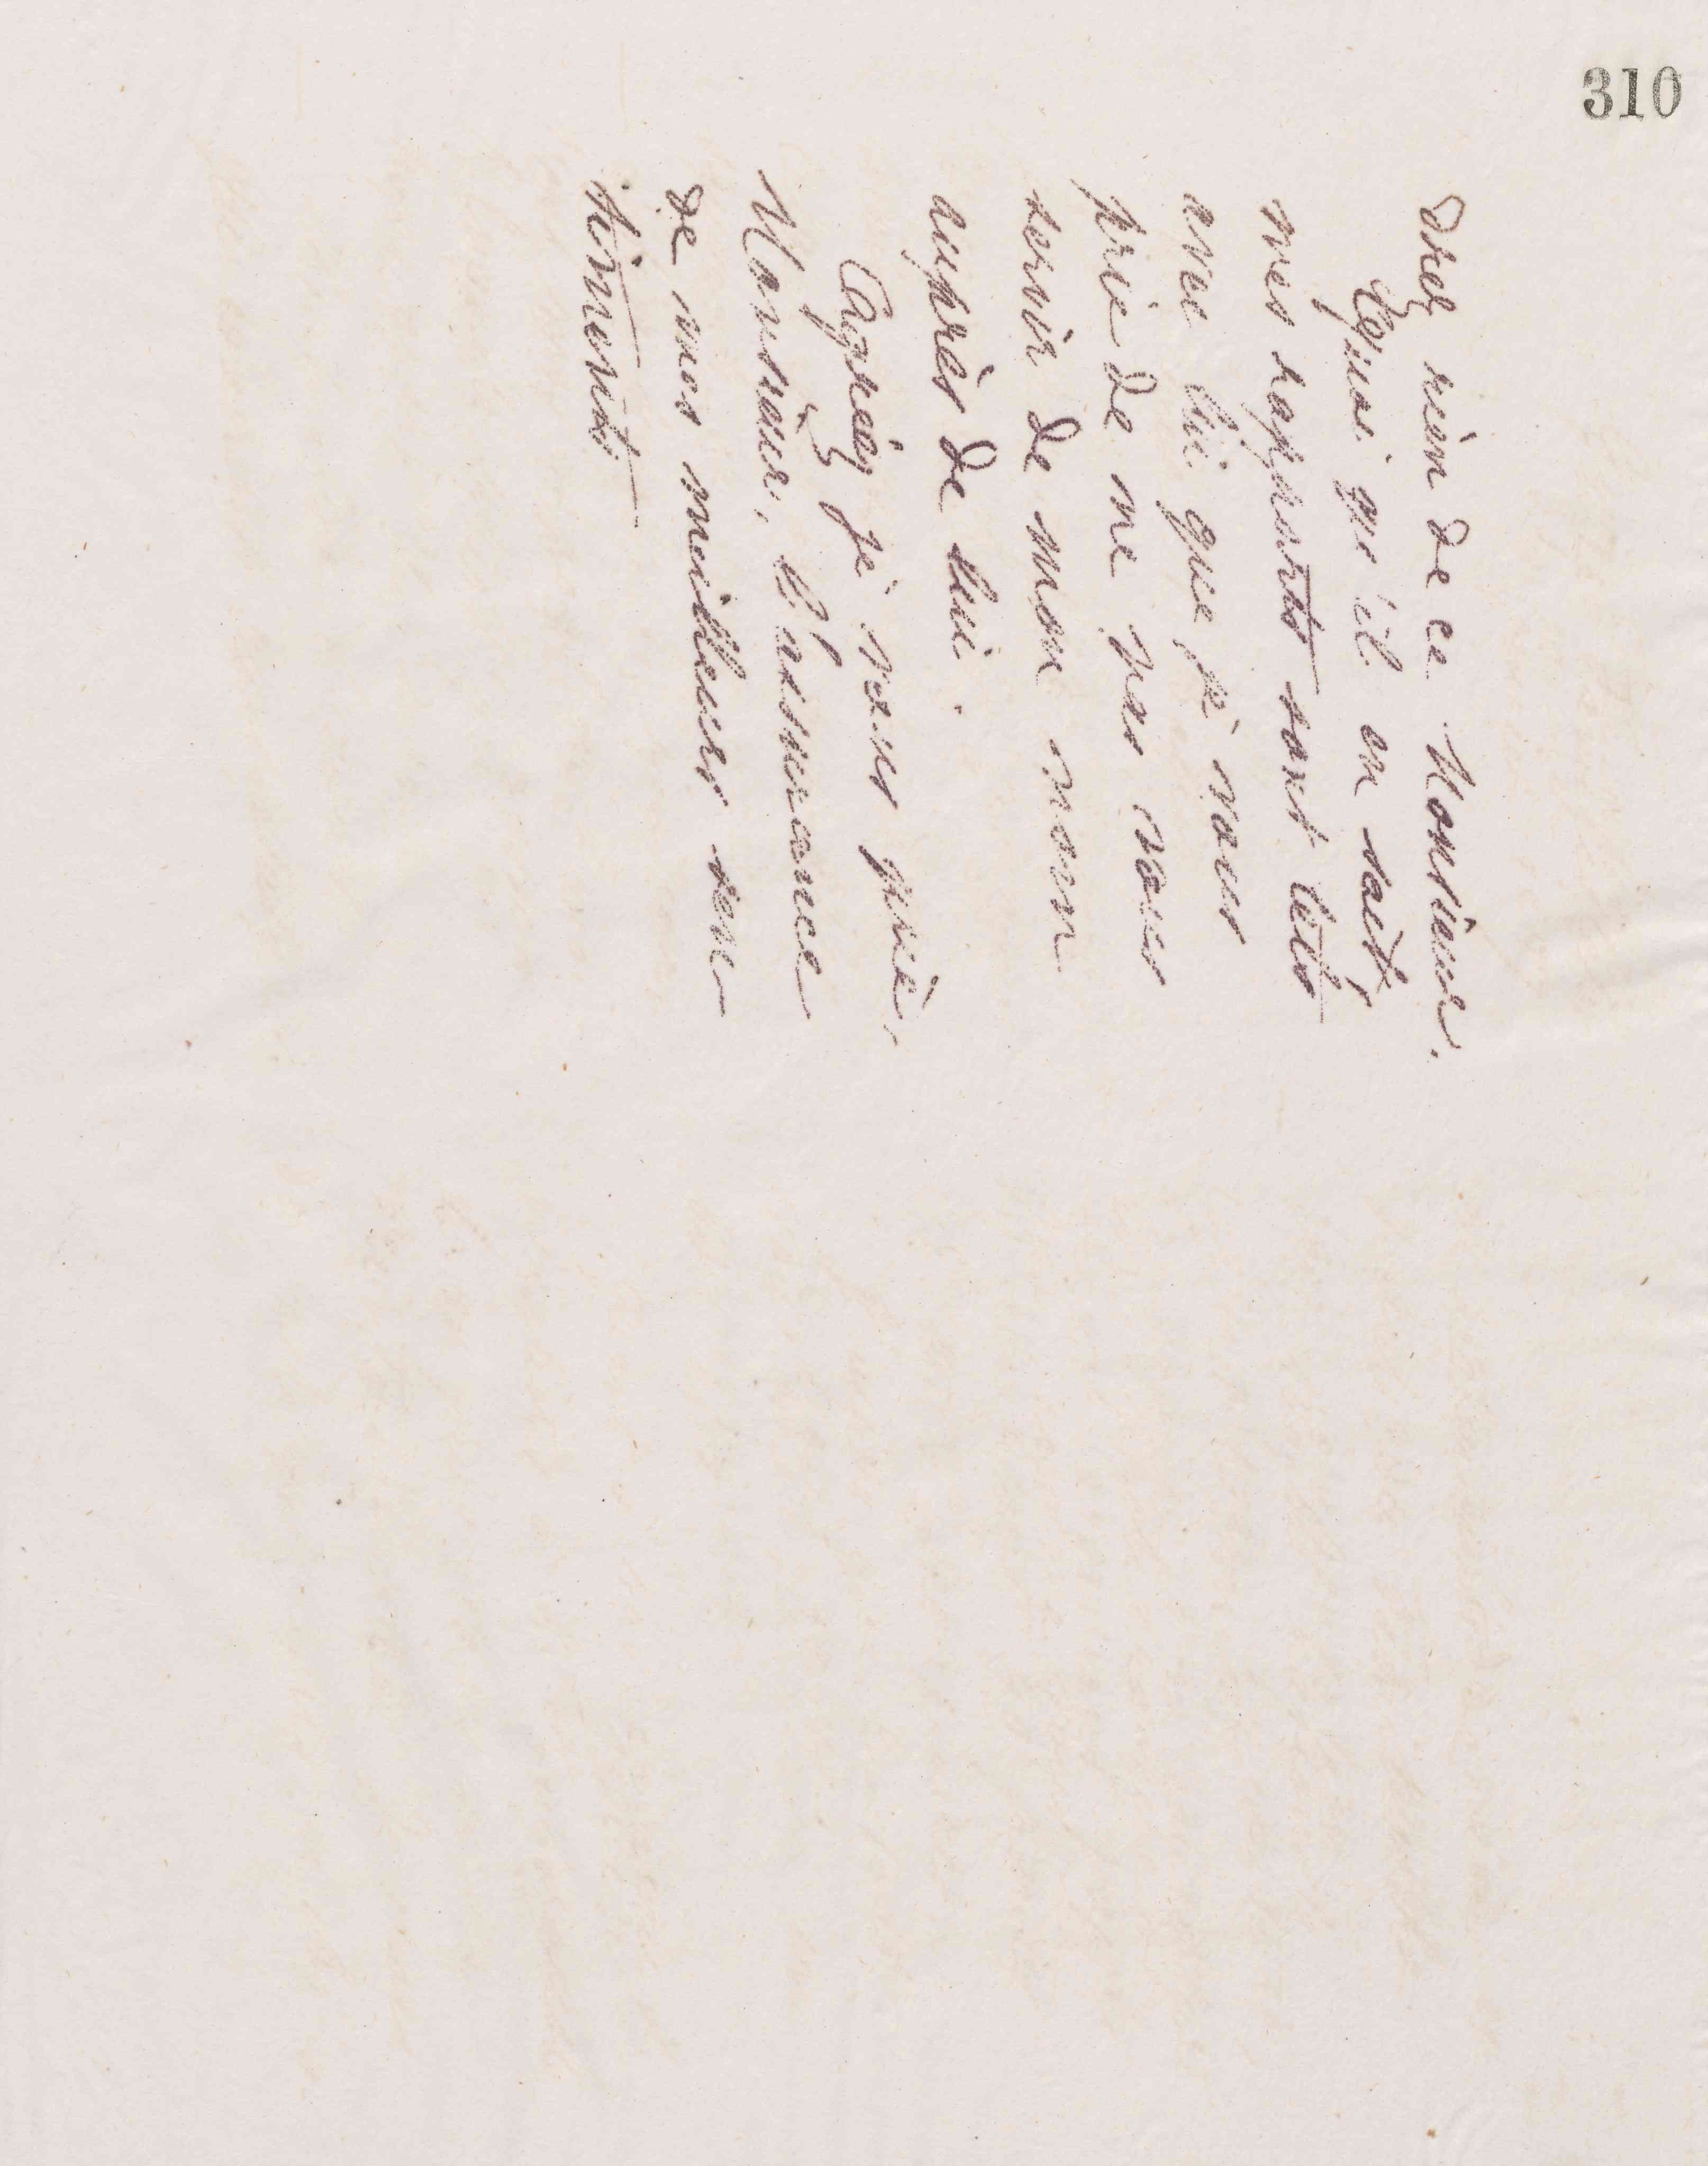 310
drez rien de ce Monsieur.
Quoi qu'il en soit,
mes rapports sont tels
avec lui que je vous
prie de ne pas vous
servir de mon nom
auprès de lui.
Agréez je vous prie,
Monsieur, l'assurance
de mes meilleurs sen
timents